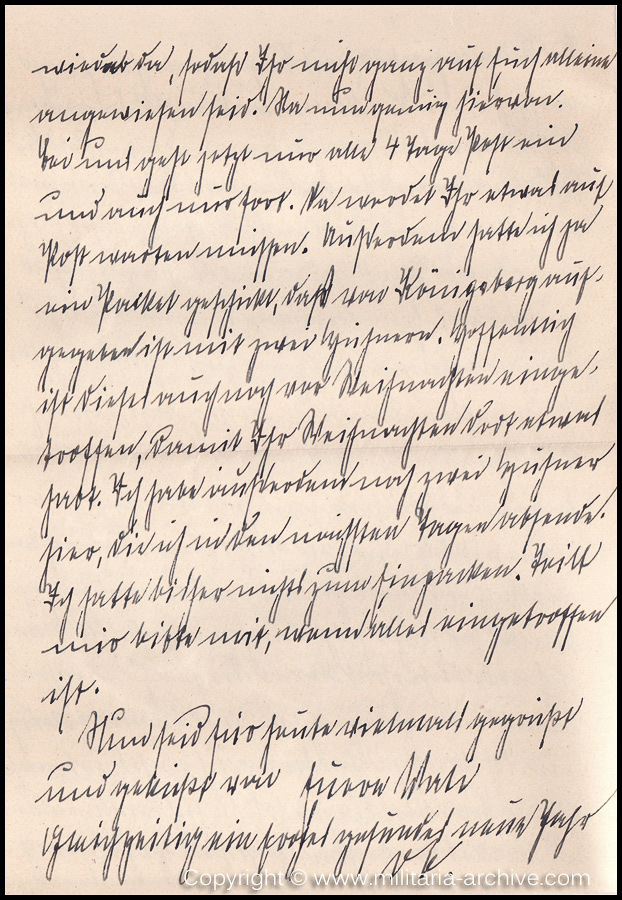 wieder da, sodass Ihr nicht ganz auf Euch alleine
angewiesen seid. Na nun genug hiervon.
Bei uns geht jetzt nur alle 4 Tage Post ein
und auch nur fort. Da werdet Ihr etwas auf
Post warten müssen. Ausserdem hatte ich ja
ein Packet geschickt, dass von Königsberg auf-
gegeben ist mit zwei Hühnern. Hoffentlich
ist dieses auch noch vor Weihnachten einge-
troffen, damit Ihr Weihnachten dort etwas
habt. Ich habe ausserdem noch zwei Hühner
hier, die ich in den nächsten Tagen absende.
Ich hatte bisher nichts zum Einpacken. Teilt
mir bitte mit, wenn alles eingetroffen
ist.
Nun seid für heute vielmals gegrüßt
und geküßt von Eurem Vati
Gleichzeitig ein frohes gesundes neue Jahr
Copyright © www.militaria-archive.com